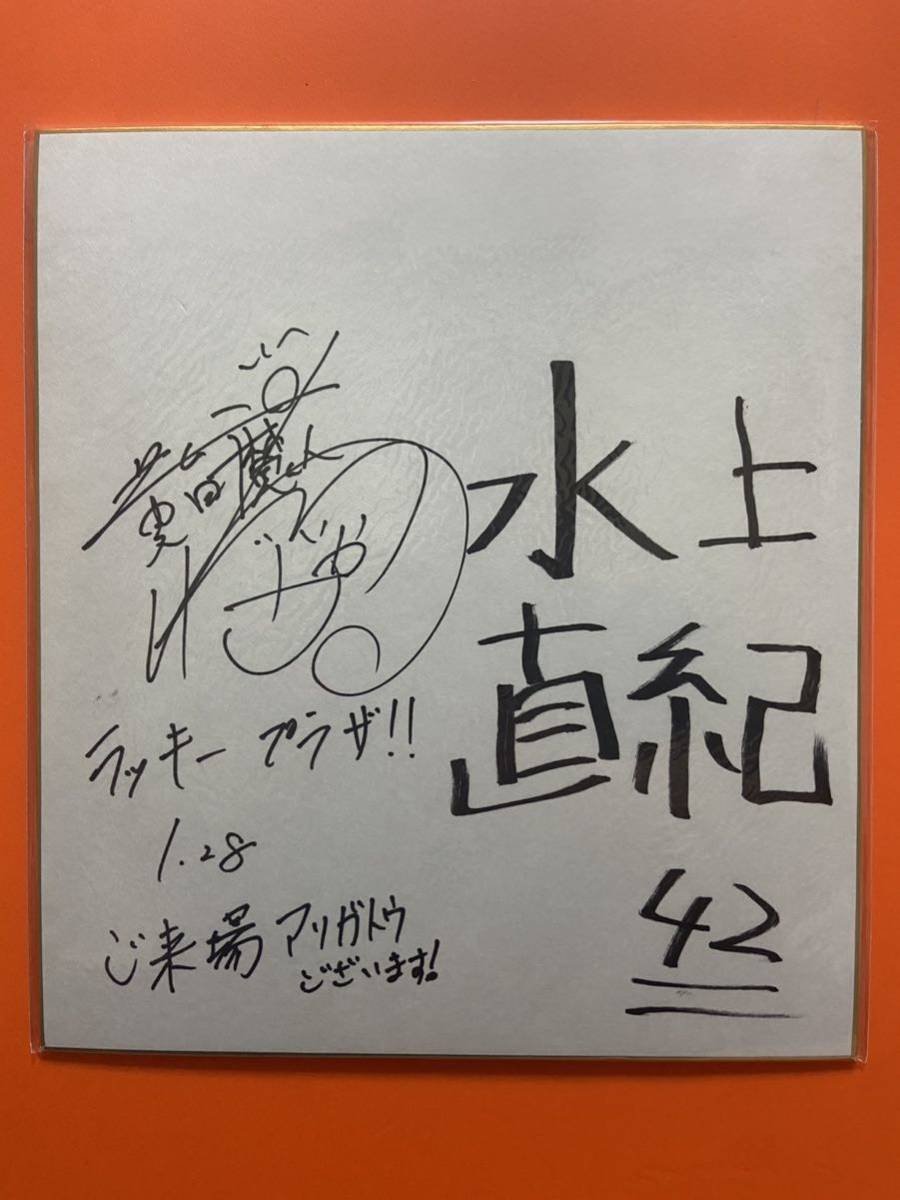 水上
直紀
42
ラッキープラザ!!
1.28
ご来場アリガトウ
ございます!